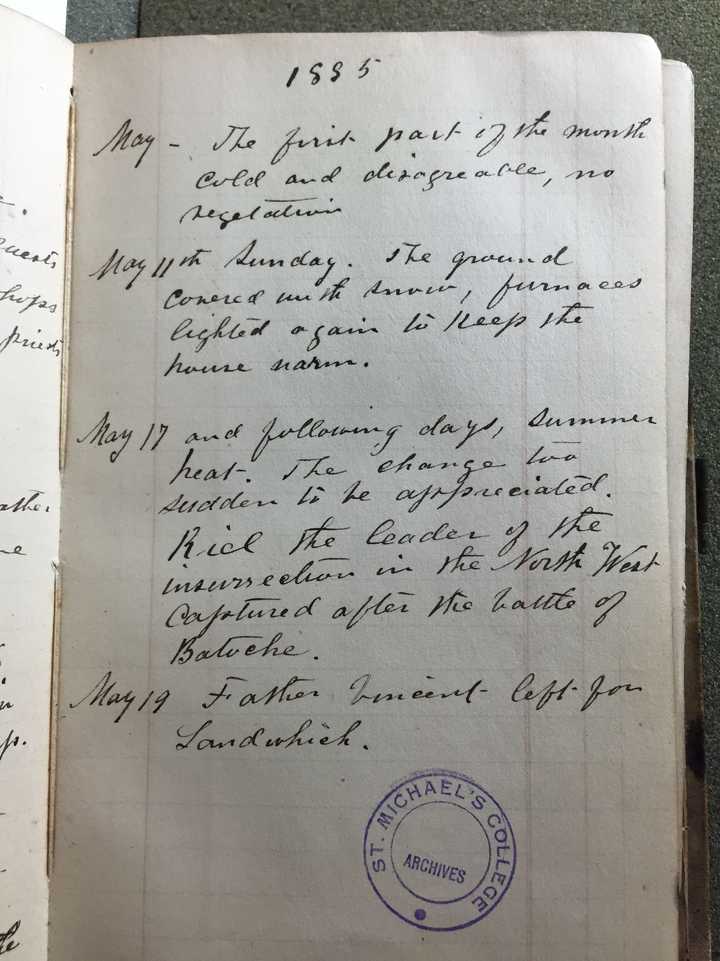 uests
hops
priests
1885
May - The first part of the month
cold and disagreable, no
vegetation
May 11th Sunday. The ground
covered with snow, furnaces
lighted again to keep the
house warm.
May 17 and following days, summer
heat. The change too
sudden to be appreciated.
Riel the leader of the
insurrection in the North West
captured after the battle of
Batoche.
May 19 Father Vincent left for
Sandwhich.
ST. MICHAEL'S COLLEGE
ARCHIVES